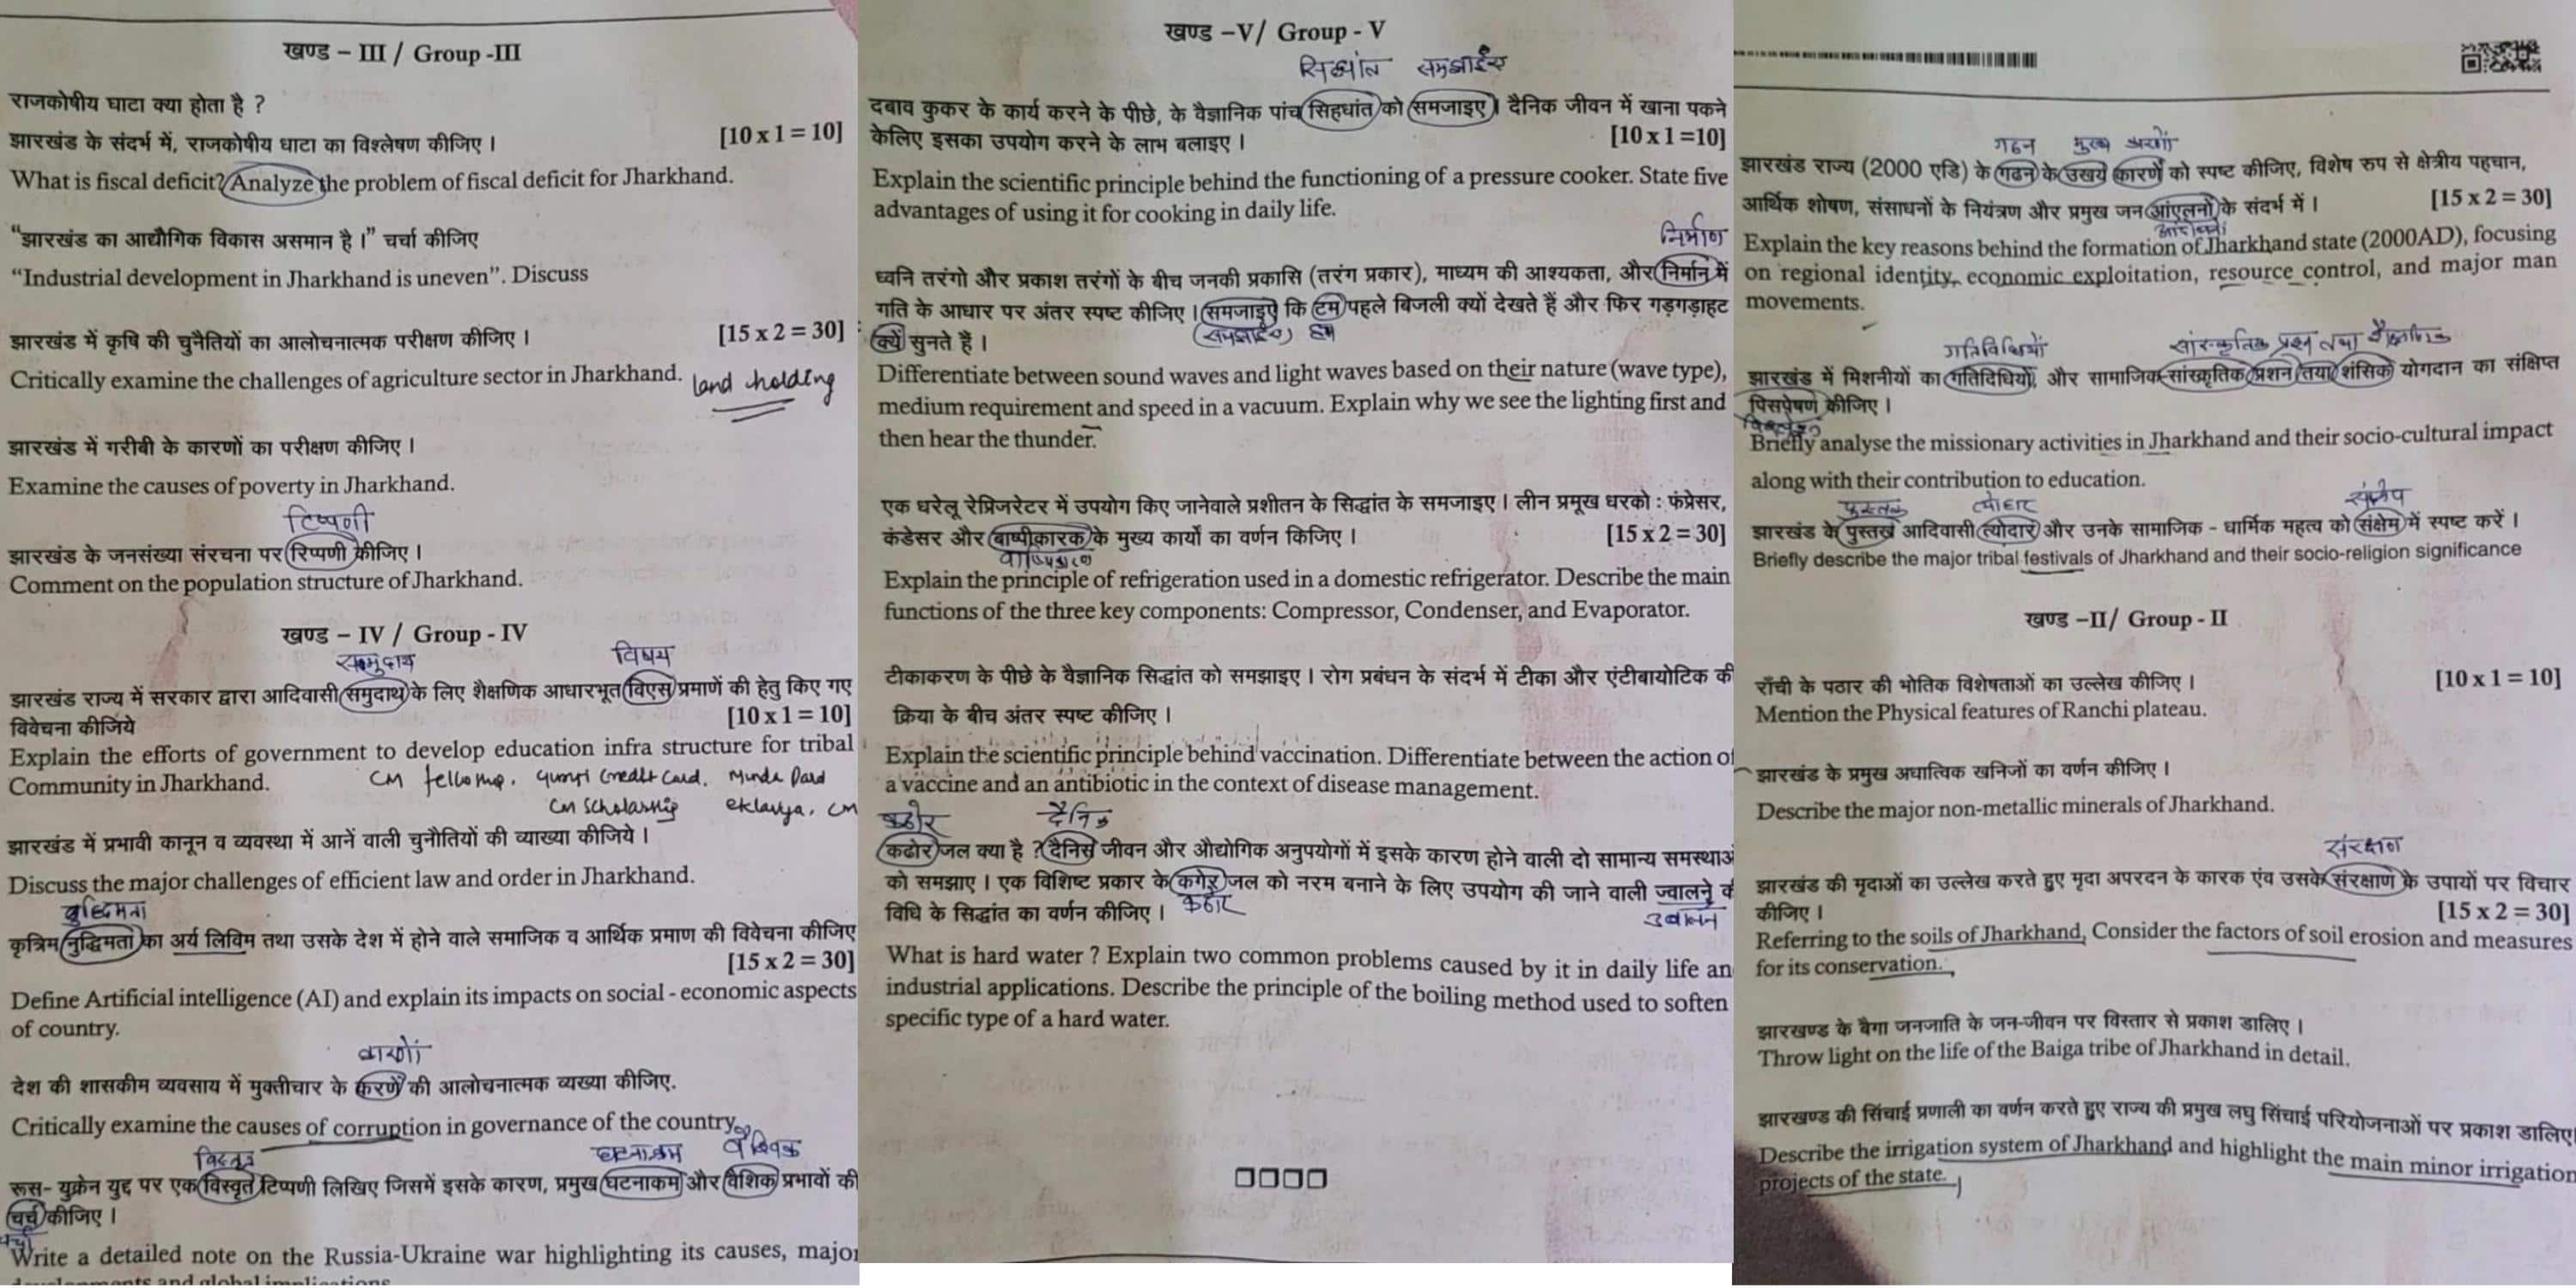 खण्ड – III / Group -III
राजकोषीय घाटा क्या होता है ?
झारखंड के संदर्भ में, राजकोषीय धाटा का विश्लेषण कीजिए । [10 x 1 = 10]
What is fiscal deficit? Analyze the problem of fiscal deficit for Jharkhand.
"झारखंड का आद्यौगिक विकास असमान है ।" चर्चा कीजिए
"Industrial development in Jharkhand is uneven". Discuss
झारखंड में कृषि की चुनैतियों का आलोचनात्मक परीक्षण कीजिए । [15 x 2 = 30]
Critically examine the challenges of agriculture sector in Jharkhand.
land holding
झारखंड में गरीबी के कारणों का परीक्षण कीजिए ।
Examine the causes of poverty in Jharkhand.
टिप्पणी
झारखंड के जनसंख्या संरचना पर रिप्पणी कीजिए ।
Comment on the population structure of Jharkhand.
खण्ड – IV / Group - IV
समुदाय विषय
झारखंड राज्य में सरकार द्वारा आदिवासी समुदाथ के लिए शैक्षणिक आधारभूत विएस प्रमाणें की हेतु किए गए
विवेचना कीजिये [10 x 1 = 10]
Explain the efforts of government to develop education infra structure for tribal
Community in Jharkhand.
CM Credit Card.
CM Scholarship eklavya, CM
झारखंड में प्रभावी कानून व व्यवस्था में आनें वाली चुनौतियों की व्याख्या कीजिये ।
Discuss the major challenges of efficient law and order in Jharkhand.
बुद्धिमता
कृत्रिम नुद्धिमता का अर्य लिविम तथा उसके देश में होने वाले समाजिक व आर्थिक प्रमाण की विवेचना कीजिए
[15 x 2 = 30]
Define Artificial intelligence (AI) and explain its impacts on social - economic aspects
of country.
कारणों
देश की शासकीम व्यवसाय में मुक्तीचार के करणें की आलोचनात्मक व्यख्या कीजिए.
Critically examine the causes of corruption in governance of the country.
विस्तृत घटनाक्रम वैश्विक
रूस- युक्रेन युद्द पर एक विस्वृते टिप्पणी लिखिए जिसमें इसके कारण, प्रमुख घिटनाकम और वैशिक प्रभावों की
चर्च कीजिए ।
चर्चा
Write a detailed note on the Russia-Ukraine war highlighting its causes, major
developments and global implications
खण्ड –V/ Group - V
सिद्धांत समझाईए
दबाव कुकर के कार्य करने के पीछे, के वैज्ञानिक पांच सिहधांत को समजाइए । दैनिक जीवन में खाना पकने
केलिए इसका उपयोग करने के लाभ बलाइए । [10 x 1 =10]
Explain the scientific principle behind the functioning of a pressure cooker. State five
advantages of using it for cooking in daily life.
निर्माण
ध्वनि तरंगो और प्रकाश तरंगों के बीच जनकी प्रकासि (तरंग प्रकार), माध्यम की आश्यकता, और निर्मान में
गति के आधार पर अंतर स्पष्ट कीजिए । समजाइए कि टम पहले बिजली क्यों देखते हैं और फिर गड़गड़ाहट
क्यें सुनते हैं ।
समझाईए हम
Differentiate between sound waves and light waves based on their nature (wave type),
medium requirement and speed in a vacuum. Explain why we see the lighting first and
then hear the thunder.
एक धरेलू रेप्रिजरेटर में उपयोग किए जानेवाले प्रशीतन के सिद्धांत के समजाइए । लीन प्रमूख धरको : फंप्रेसर,
कंडेसर और बाष्पीकारक के मुख्य कार्यो का वर्णन किजिए । [15 x 2 = 30]
Explain the principle of refrigeration used in a domestic refrigerator. Describe the main
functions of the three key components: Compressor, Condenser, and Evaporator.
टीकाकरण के पीछे के वैज्ञानिक सिद्धांत को समझाइए । रोग प्रबंधन के संदर्भ में टीका और एंटीबायोटिक की
क्रिया के बीच अंतर स्पष्ट कीजिए ।
Explain the scientific principle behind vaccination. Differentiate between the action of
a vaccine and an antibiotic in the context of disease management.
कठोर दैनिक
कढोर जल क्या है ? दैनिस जीवन और औद्योगिक अनुपयोगों में इसके कारण होने वाली दो सामान्य समस्थाअ
को समझाए । एक विशिष्ट प्रकार के कगेर जल को नरम बनाने के लिए उपयोग की जाने वाली ज्वालने क
विधि के सिद्धांत का वर्णन कीजिए ।
कठोर उबालन
What is hard water ? Explain two common problems caused by it in daily life an
industrial applications. Describe the principle of the boiling method used to soften
specific type of a hard water.
गठन मुख्य कारणों
झारखंड राज्य (2000 एडि) के गढन के उखये कारणें को स्पष्ट कीजिए, विशेष रुप से क्षेत्रीय पहचान,
आर्थिक शोषण, संसाधनों के नियंत्रण और प्रमुख जन आंएलनों के संदर्भ में । [15 x 2 = 30]
Explain the key reasons behind the formation of Jharkhand state (2000AD), focusing
on regional identity, economic exploitation, resource control, and major man
movements.
गतिविधियों सांस्कृतिक प्रश्न तथा शैक्षणिक
झारखंड में मिशनीयों का गतिदिधियों, और सामाजिक-सांख्कृतिक प्रशन तया शंसिक योगदान का संक्षिप्त
पिसपेषण कीजिए ।
Briefly analyse the missionary activities in Jharkhand and their socio-cultural impact
along with their contribution to education.
पुस्तक त्योहार संक्षेप
झारखंड के पुस्तख आदिवासी त्योदार और उनके सामाजिक - धार्मिक महत्व को संक्षेम में स्पष्ट करें ।
Briefly describe the major tribal festivals of Jharkhand and their socio-religion significance
खण्ड –II/ Group - II
राँची के पठार की भोतिक विशेषताओं का उल्लेख कीजिए । [10 x 1 = 10]
Mention the Physical features of Ranchi plateau.
झारखंड के प्रमुख अधात्विक खनिजों का वर्णन कीजिए ।
Describe the major non-metallic minerals of Jharkhand.
संरक्षण
झारखंड की मृदाओं का उल्लेख करते हुए मृदा अपरदन के कारक एंव उसके संरक्षाण के उपायों पर विचार
कीजिए । [15 x 2 = 30]
Referring to the soils of Jharkhand, Consider the factors of soil erosion and measures
for its conservation.
झारखण्ड के बैगा जनजाति के जन-जीवन पर विस्तार से प्रकाश डालिए ।
Throw light on the life of the Baiga tribe of Jharkhand in detail.
झारखण्ड की सिंचाई प्रणाली का वर्णन करते हुए राज्य की प्रमुख लघु सिंचाई परियोजनाओं पर प्रकाश डालिए
Describe the irrigation system of Jharkhand and highlight the main minor irrigation
projects of the state.